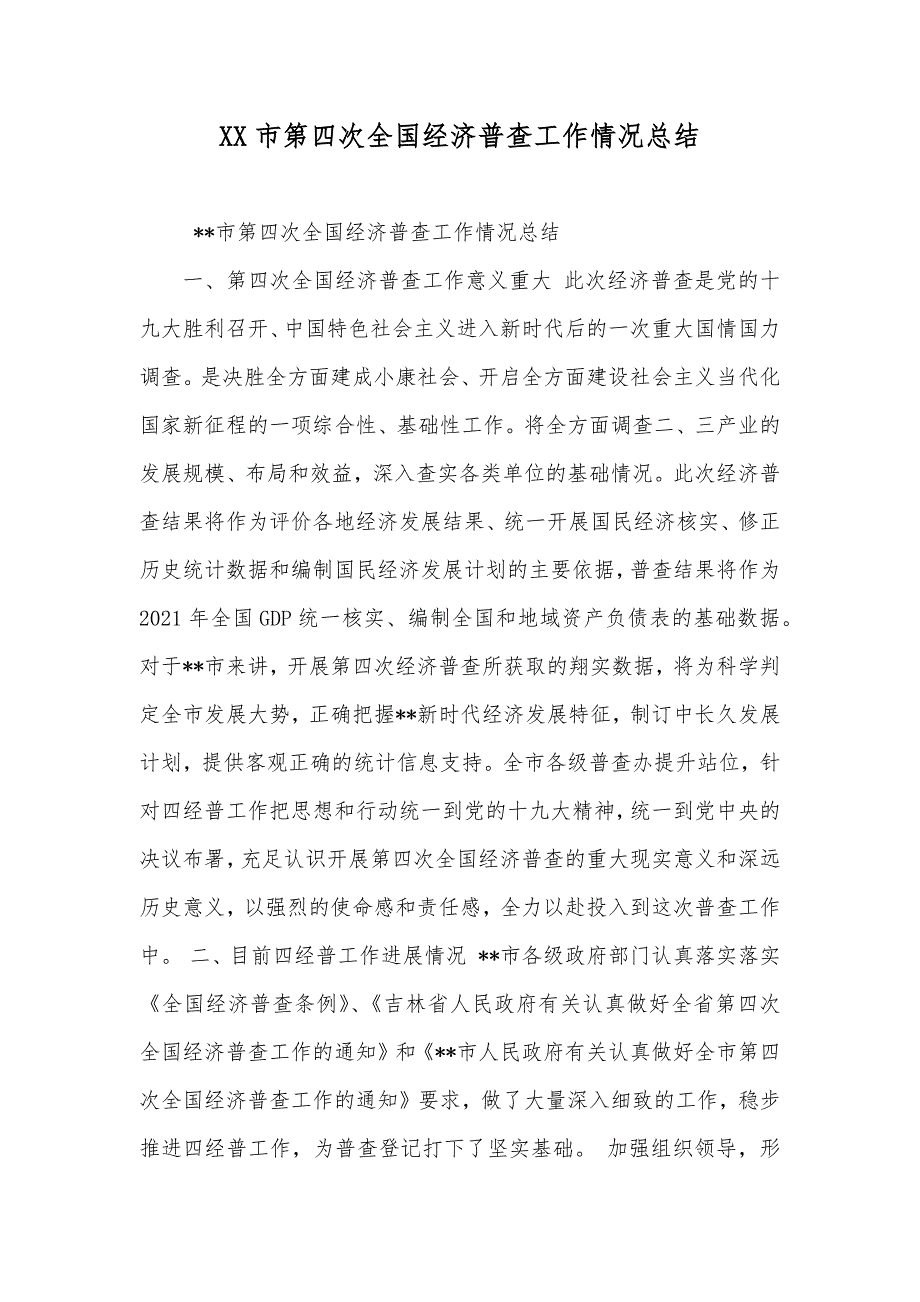 XX 市第四次全国经济普查工作情况总结
**市第四次全国经济普查工作情况总结
一、第四次全国经济普查工作意义重大 此次经济普查是党的十
九大胜利召开、中国特色社会主义进入新时代后的一次重大国情国力
调查。是决胜全方面建成小康社会、开启全方面建设社会主义当代化
国家新征程的一项综合性、基础性工作。将全方面调查二、三产业的
发展规模、布局和效益，深入查实各类单位的基础情况。此次经济普
查结果将作为评价各地经济发展结果、统一开展国民经济核实、修正
历史统计数据和编制国民经济发展计划的主要依据，普查结果将作为
2021 年全国 GDP 统一核实、编制全国和地域资产负债表的基础数据。
对于**市来讲，开展第四次经济普查所获取的翔实数据，将为科学判
定全市发展大势，正确把握**新时代经济发展特征，制订中长久发展
计划，提供客观正确的统计信息支持。全市各级普查办提升站位，针
对四经普工作把思想和行动统一到党的十九大精神，统一到党中央的
决议布署，充足认识开展第四次全国经济普查的重大现实意义和深远
历史意义，以强烈的使命感和责任感，全力以赴投入到这次普查工作
中。 二、目前四经普工作进展情况 **市各级政府部门认真落实落实
《全国经济普查条例》、《吉林省人民政府有关认真做好全省第四次
全国经济普查工作的通知》和《**市人民政府有关认真做好全市第四
次全国经济普查工作的通知》要求，做了大量深入细致的工作，稳步
推进四经普工作，为普查登记打下了坚实基础。 加强组织领导，形